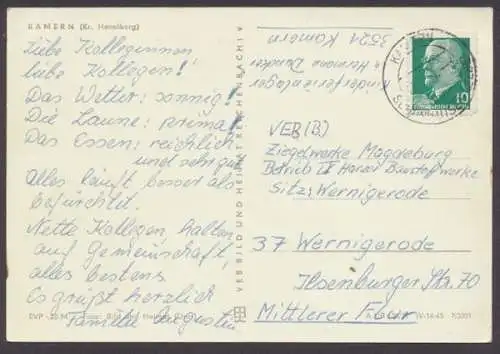 KAMERN (Kr. Havelberg)
Liebe Kolleginnen
liebe Kollegen!
Das Wetter: sonnig!
Die Laune: prima!
Das Essen: reichlich
und sehr gut
Alles läuft besser als
befürchtet.
Nette Kollegen halten
auf Gemeinschaft,
alles bestens
Es grüßt herzlich
Familie Augustin
EVP -,20 M
VEB BILD UND HEIMAT REICHENBACH i V
Kinderferienlager
3521 Kamern
10
VEB (B)
Ziegelwerke Magdeburg
Betrieb IV Harzer Baustoffwerke
Sitz: Wernigerode
37 Wernigerode
Ilsenburger Str. 70
Mittlerer Flur